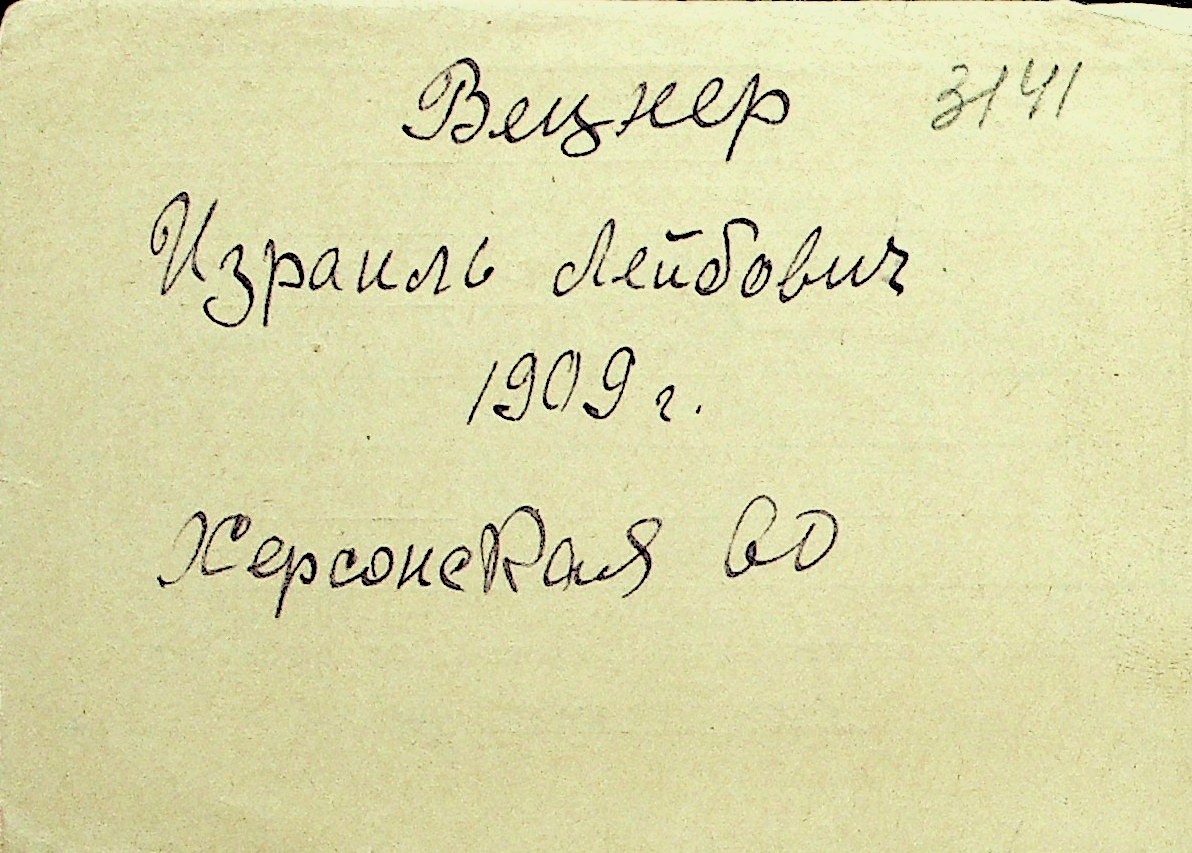 Вецнер 3141
Израиль Лейбович
1909 г.
Херсонская 60